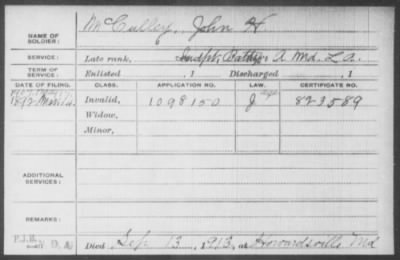 McCulley, John H.
NAME OF
SOLDIER:
SERVICE: Late rank, Indpt. Batty. A Md. L. A.
TERM OF
SERVICE: Enlisted , 1 Discharged , 1
DATE OF FILING. CLASS. APPLICATION NO. LAW. CERTIFICATE NO.
1892 Mar. 14. Invalid, 1098150 J 823589
Widow,
Minor,
ADDITIONAL
SERVICES:
REMARKS:
P.J.R. Died Sep 13, 1913, at Howardsville Md